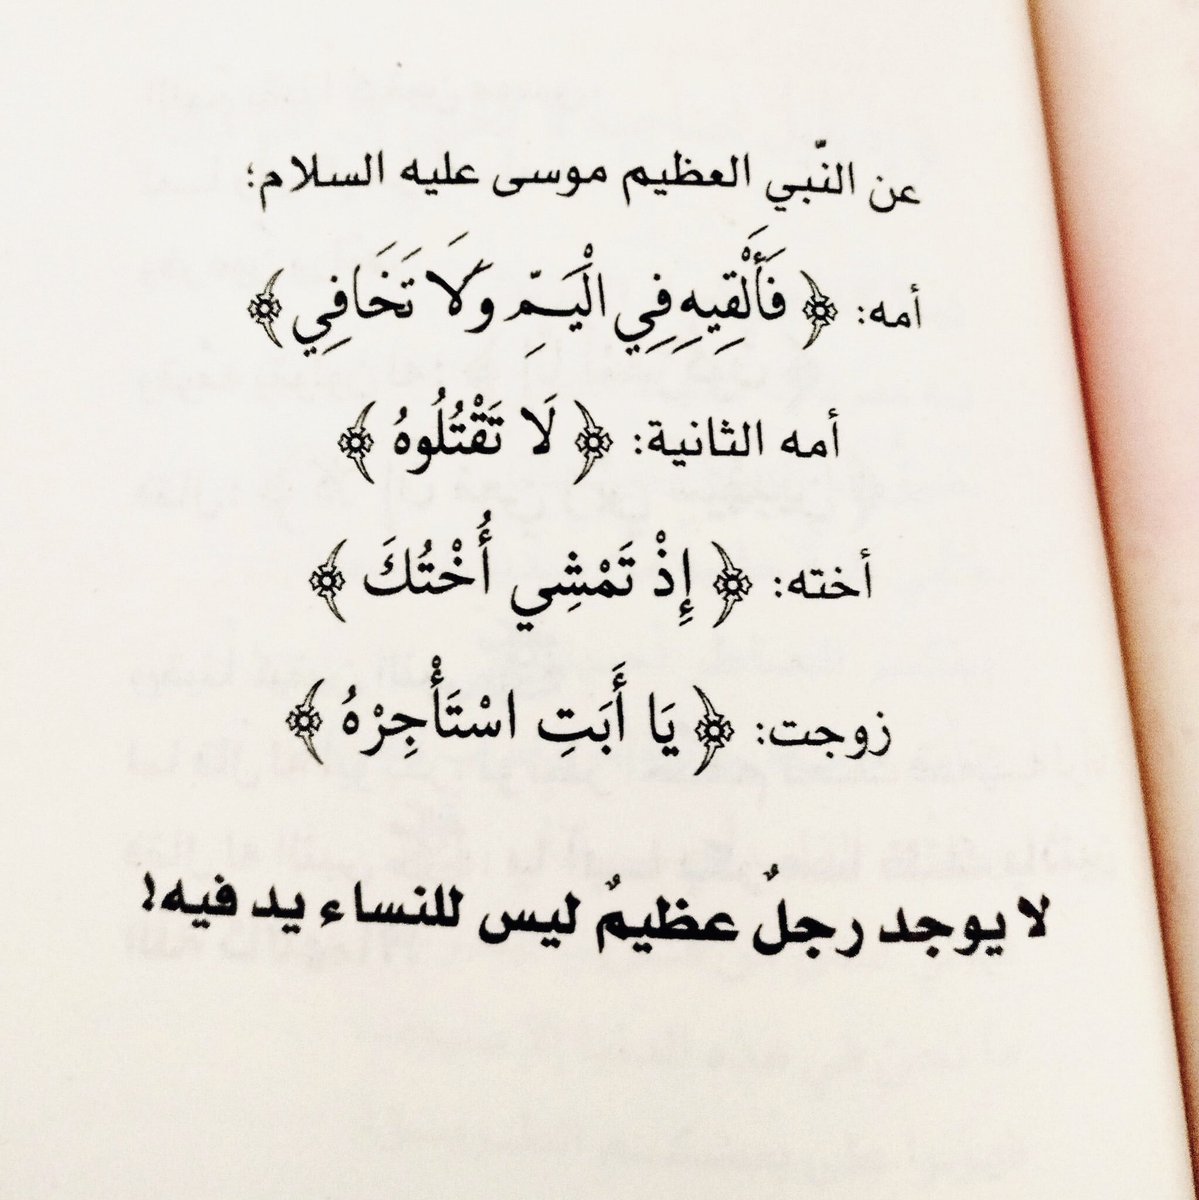 عن النّبي العظيم موسى عليه السلام؛
أمه: ﴿ فَأَلْقِيهِ فِي الْيَمِّ وَلَا تَخَافِي ﴾
أمه الثانية: ﴿ لَا تَقْتُلُوهُ ﴾
أخته: ﴿ إِذْ تَمْشِي أُخْتُكَ ﴾
زوجت: ﴿ يَا أَبَتِ اسْتَأْجِرْهُ ﴾
لا يوجد رجلٌ عظيمٌ ليس للنساء يد فيه!